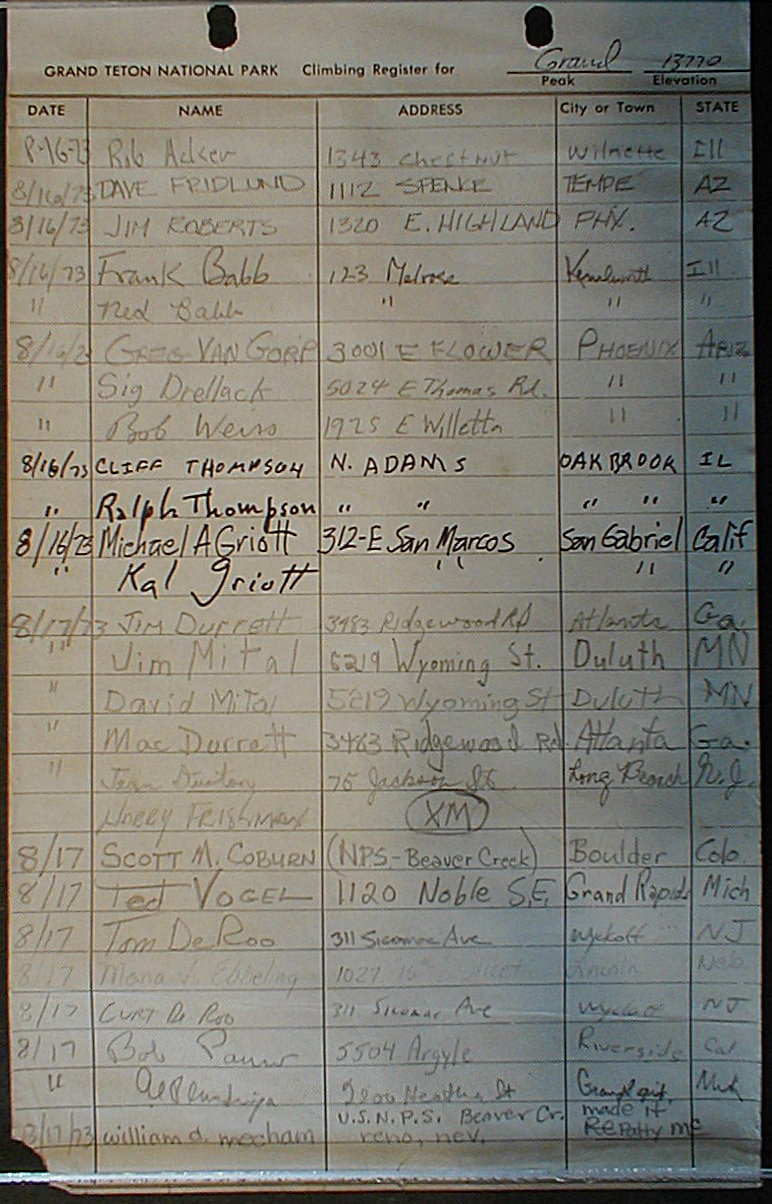 GRAND TETON NATIONAL PARK Climbing Register for Grand 13770
Peak Elevation
DATE NAME ADDRESS City or Town STATE
8-16-73 Rob Acker 1343 Chestnut Wilmette Ill
8/16/73 DAVE FRIDLUND 1112 SPENCE TEMPE AZ
8/16/73 JIM ROBERTS 1320 E. HIGHLAND PHX. AZ
8/16/73 Frank Babb 123 Melrose Kenilworth Ill
" Ned Babb " " "
8/16/73 GREG VAN GORP 3001 E FLOWER PHOENIX ARIZ
" Sig Drellack 5024 E Thomas Rd. " "
" Bob Weiss 1925 E Willetta " "
8/16/73 CLIFF THOMPSON N. ADAMS OAK BROOK IL
" Ralph Thompson " " " " "
8/16/73 Michael A Griott 312-E San Marcos San Gabriel Calif
" Kal Griott " " "
8/17/73 JIM Durrett 3483 Ridgewood Rd Atlanta Ga.
" Jim Mital 5219 Wyoming St. Duluth MN
" David Mital 5219 Wyoming St Duluth MN
" Mac Durrett 3483 Ridgewood Rd Atlanta Ga.
" 75 Jackson St. Long Branch N.J.
HARRY FRISHMAN XM
8/17 SCOTT M. COBURN (NPS-Beaver Creek) Boulder Colo.
8/17 Ted VOGEL 1120 Noble S.E. Grand Rapids Mich
8/17 Tom De Roo 311 Sicomac Ave Wyckoff NJ
8/17 Mona 1027 Lincoln Neb
8/17 CURT De Roo 311 Sicomac Ave Wyckoff NJ
8/17 Bob 5504 Argyle Riverside Cal
" St Mich
8/17/73 william d. mecham U.S.N.P.S. Beaver Cr. made it
reno, nev.